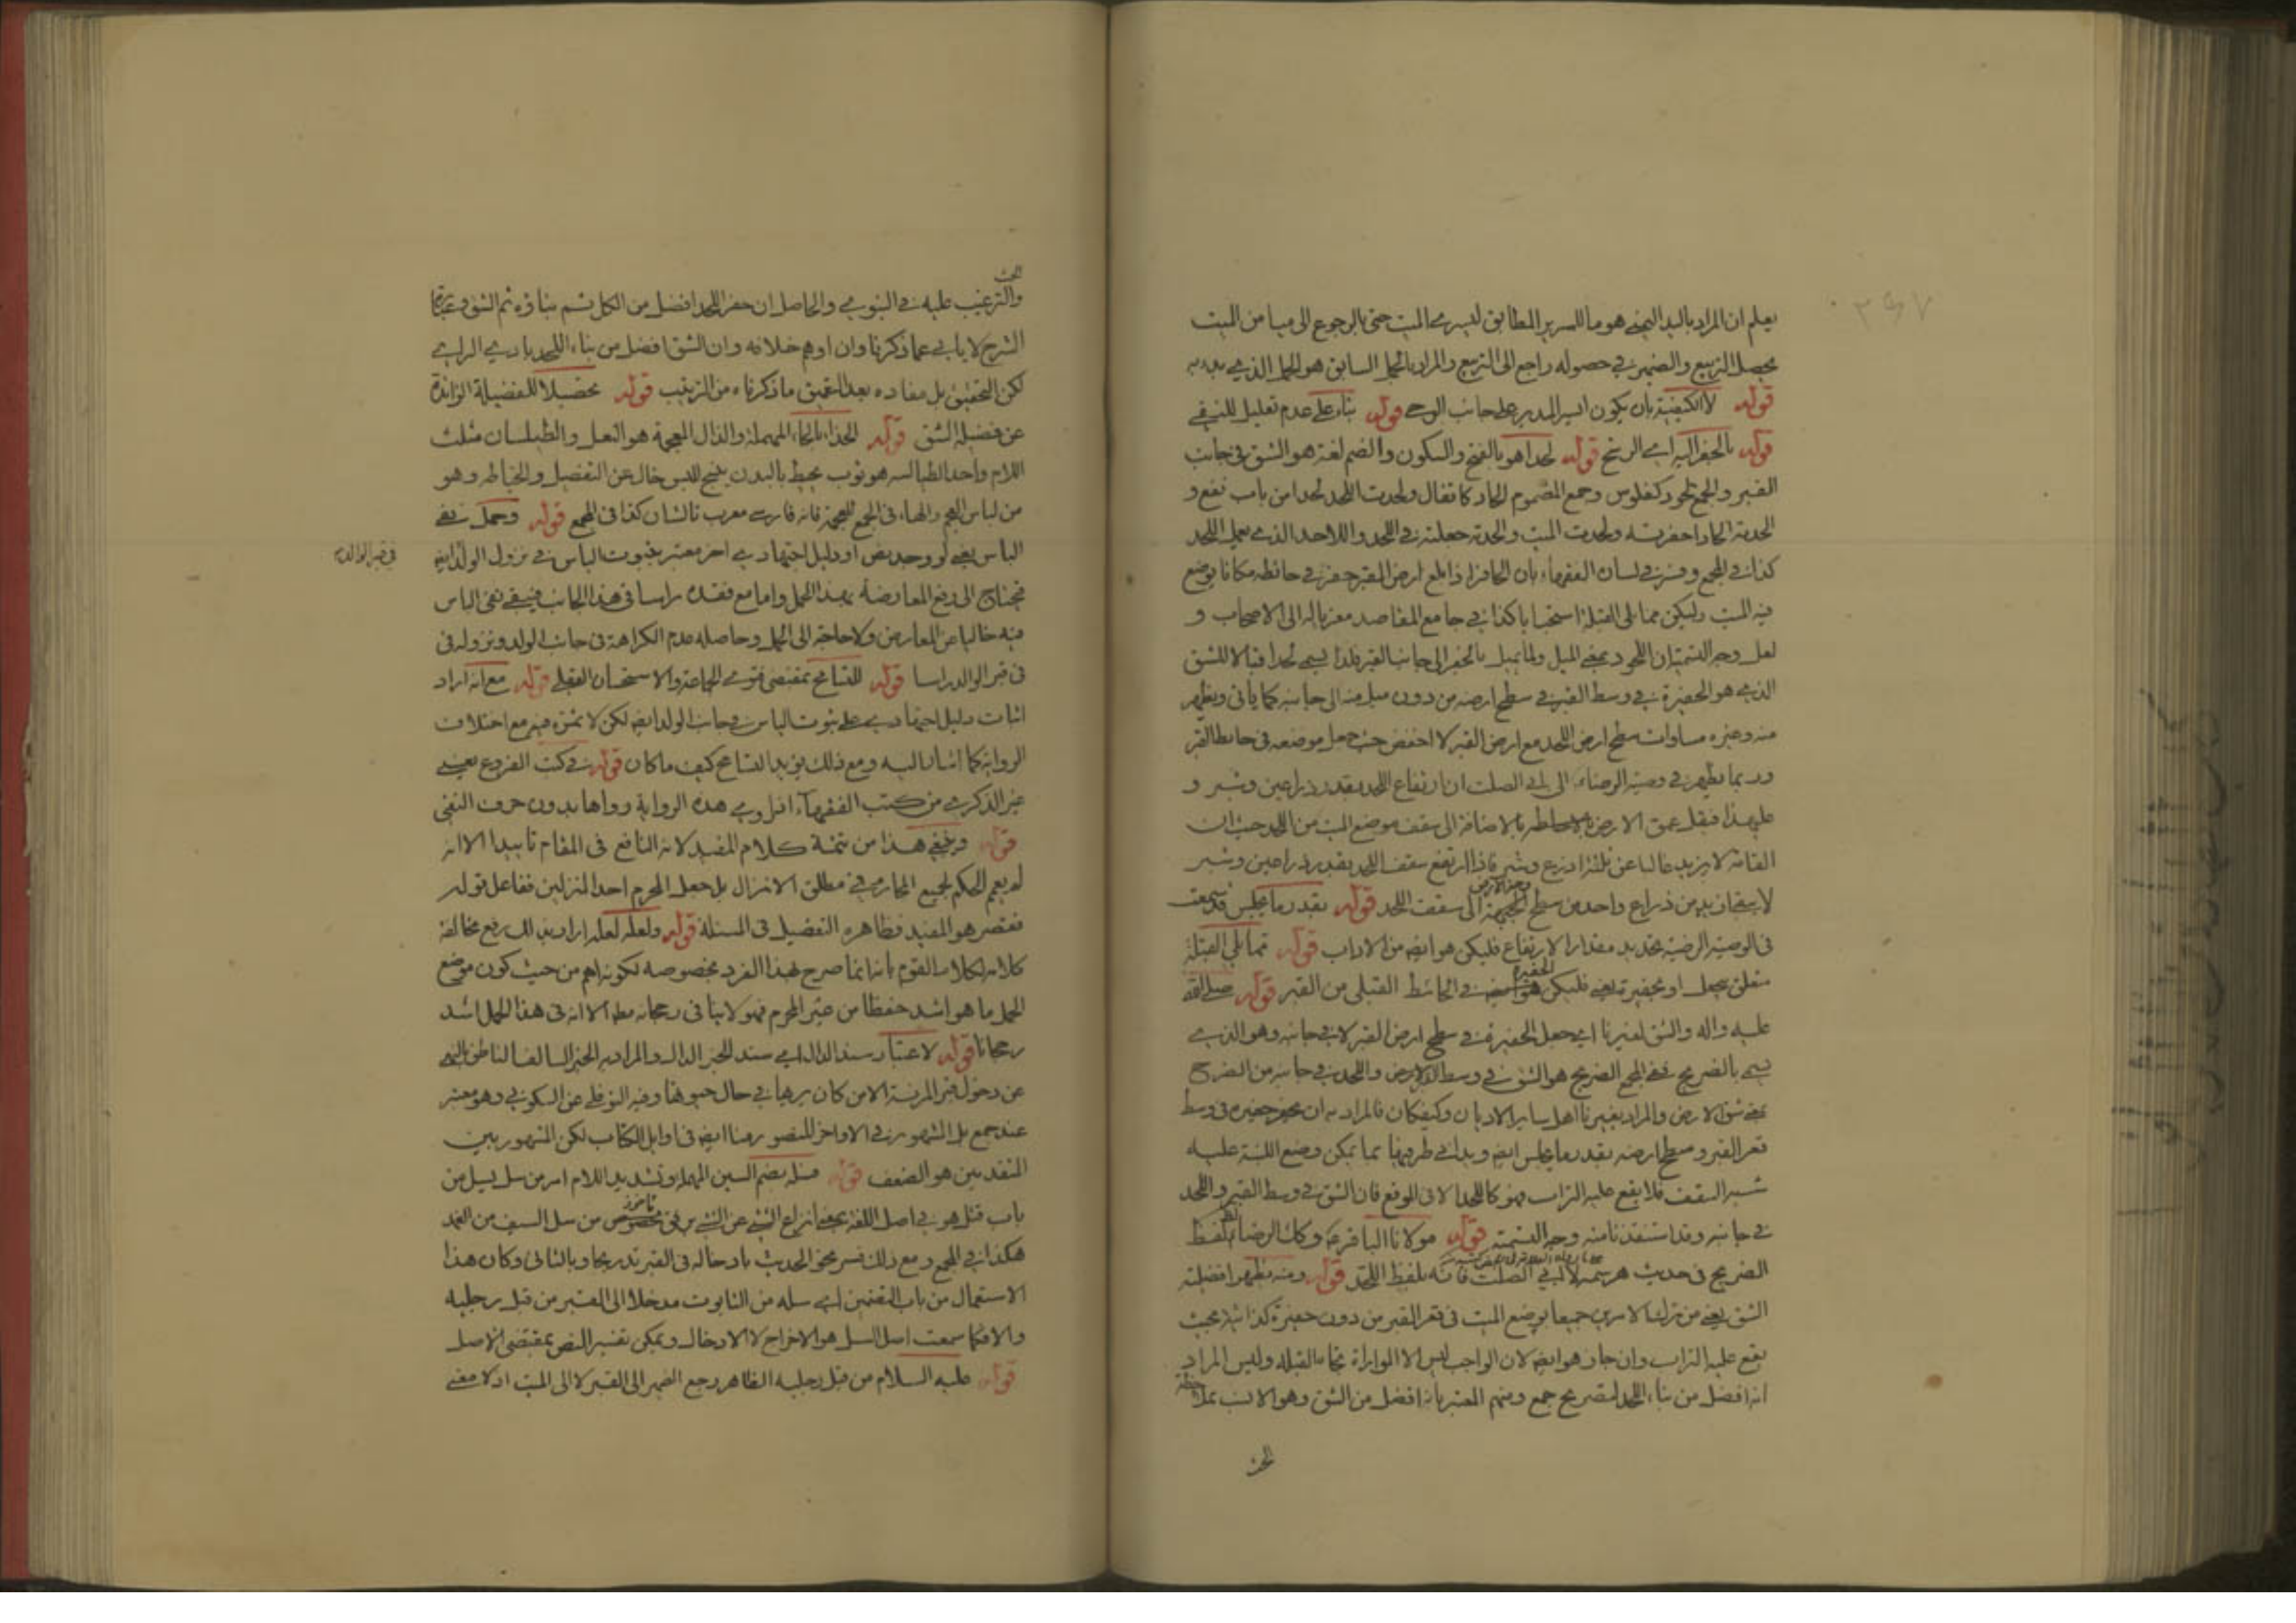 يعلم ان المراد باليد اليمنى هو ما للسرير المطابق ليسرى الميت حتى بالرجوع الى ميامن الميت
يحصل التربيع والضمير في حصوله راجع الى التربيع والمراد بالحمل السابق هو الحمل الذي
قوله لا الكيفية بان يكون ايسر المدبر على جانب الوحى قوله بناء على عدم تعليل للنفي
قوله بالحفر اليه اى الرشح قوله لحدا هو بالفتح والسكون والضم لغة هو الشق في جانب
القبر والجمع لحود كفلوس وجمع المضموم الحاد كاقفال ولحدت اللحد لحدا من باب نفع و
الحدته الحادا حفرته ولحدت الميت والحدته جعلته في اللحد واللاحد الذي يعمل اللحد
كذا في المجمع وفسر في لسان الفقهاء بان الحافر اذا بلغ ارض القبر حفر في حائطه مكانا يوضع
فيه الميت وليكن مما يلى القبلة استحبابا كذا في جامع المقاصد معزيا له الى الاصحاب و
لعل وجه التسمية ان اللحود بمعنى الميل ولما يميل بالحفر الى جانب القبر فلذا يسمى لحدا قبالا للشق
الذي هو الحفيرة في وسط القبر في سطح ارضه من دون ميل منه الى جانبه كما ياتى ويظهر
منه وغيره مساوات سطح ارض اللحد مع ارض القبر لا اخفض حيث جعل موضعه في حائط القبر
وربما يظهر في وصية الرضا الى ابى الصلت ان ارتفاع اللحد بقدر ذراعين وشبر و
على هذا فيقل عمق الارض بالاضافة الى سقف موضع الميت من اللحد حيث ان
القامة لا يزيد غالبا عن ثلثة ادرع وشبر فاذا ارتفع سقف اللحد بقدر ذراعين وشبر
لا يبقى ازيد من ذراع واحد من سطح وجه الارض الى سقف اللحد قوله بقدر ما يجلس قد سمعت
في الوصية الرضية تحديد مقدار الارتفاع فليكن هو ايضا من الاداب قوله مما يلي القبلة
متعلق بيجعل او بحفيرة يعنى فليكن الحفيرة في الحائط القبلى من القبر قوله صلى الله
عليه واله والشق لغيرنا اى جعل الحفيرة في سطح ارض القبر لا في جانبه وهو الذي
يسمى بالضريح ففي المجمع الضريح هو الشق في وسط القبر واللحد في جانبه من الضرح
بمعنى شق الارض والمراد بغيرنا اهل ساير الاديان وكيفكان فالمراد به ان يحفر حفيرة في وسط
قعر القبر وسطح ارضه بقدر ما يجلس ايضا ويبنى في طرفيها بما يمكن وضع اللبنة عليه
شبه السقف فلا يقع عليه التراب فهو كاللحد الا في الموقع فان الشق في وسط القبر واللحد
في جانبه وقد استفدنا منه وجه التسمية قوله مولانا الباقر ع وكان الرضا بلفظ
الضريح في حديث هرثمة لابى الصلت فانه بلفظ اللحد قوله ومنه يظهر افضلية
الشق يعنى من ترك الامرين جميعا بوضع الميت في قعر القبر من دون حفيرة كذائية بحيث
يقع عليه التراب وان جاز هو ايضا لان الواجب ليس الا المواراة تجاه القبلة وليس المراد
انه افضل من بناء اللحد لتصريح جمع ومنهم المعتبر بانه افضل من الشق وهو الانسب
الحث
الحث
والترغيب عليه في النبوى والحاصل ان حفر اللحد افضل من الكل ثم بناؤه ثم الشق
الشرح لا يابى عما ذكرنا وان اوهم خلافه وان الشق افضل من بناء اللحد بادى الراى
لكن التحقيق بل مفاده بعد التعمق ما ذكرناه من الترتيب قوله تحصيلا للفضيلة الزائدة
عن فضيلة الشق قوله الحذاء بالحاء المهملة والذال المعجمة هو النعل والطيلسان مثلث
اللام واحد الطيالسه هو ثوب يحيط بالبدن ينسج للبس خال عن التفصيل والخياطه وهو
من لباس العجم والهاء في الجمع للعجمة فانه فارسى معرب تالشان كذا في المجمع قوله وحمل نفى
الباس يعنى لو وجد نص او دليل اجتهادى اخر معتبر بثبوت الباس في نزول الولد ايضا
في قبر الوالد
فيحتاج الى رفع المعارضة بهذا الحمل واما مع فقده راسا في هذا الجانب فيبقى نفى الباس
فيه خاليا عن المعارض ولا حاجة الى الحمل وحاصله عدم الكراهة في جانب الولد ونزوله في
في قبر الوالد راسا قوله للتسامح بمقتضى فتوى الجماعة والاستحسان العقلى قوله مع انه اراد
اثبات دليل اجتهادى على ثبوت الباس في جانب الولد ايضا لكن لا يتم مع اختلاف
الرواية كما اشار اليه ومع ذلك يؤيد التسامح كيف ما كان قوله في كتب الفروع يعنى
غير الذكرى من كتب الفقهاء اذ راوى هذه الرواية رواها بدون حرف النفى
قوله وعنى هذا من تتمة كلام المفيد لانه النافع في المقام تاييدا الا انه
لم يعم الحكم لجميع المحارم في مطلق الانزال بل جعل المحرم احد المنزلين ففاعل قوله
فقصر هو المفيد فظاهره التفصيل في المسئلة قوله ولعله لعله اراد بذلك رفع مخالفة
كلامه لكلام القوم بانه انما صرح بهذا الفرد بخصوصه لكونه اهم من حيث كون موضع
الحمل ما هو اشد حفظا من غير المحرم فهو لا ينافى رجحانه مطلقا الا انه في هذا المحل اشد
رجحانا قوله لاعتبار سند الدال اى سند الخبر الدال والمراد به الخبر السالف الناطق بالنهى
عن دخول قبر المرئة الا من كان يرهيا في حال حيوتها وفيه النوفلى عن السكونى وهو معتبر
عند جمع بل المشهور في الاواخر المنصور هنا ايضا في اوايل الكتاب لكن المشهور بين
المتقدمين هو الضعف قوله فسله بضم السين المهملة وتشديد اللام امر من سل يسل من
باب قتل هو في اصل اللغة بمعنى انتزاع الشئ عن الشئ ماخوذ من سل السيف من الغمد
هكذا في المجمع ومع ذلك فسر نحو الحديث بادخاله في القبر تدريجا وبالتانى وكان هذا
الاستعمال من باب التضمين اى سله من التابوت مدخلا الى القبر من قبل رجليه
والا فكما سمعت اصل السل هو الاخراج لا الادخال ويمكن تفسير النص بمقتضى الاصل
قوله عليه السلام من قبل رجليه الظاهر رجع الضمير الى القبر لا الى الميت اذ لا معنى